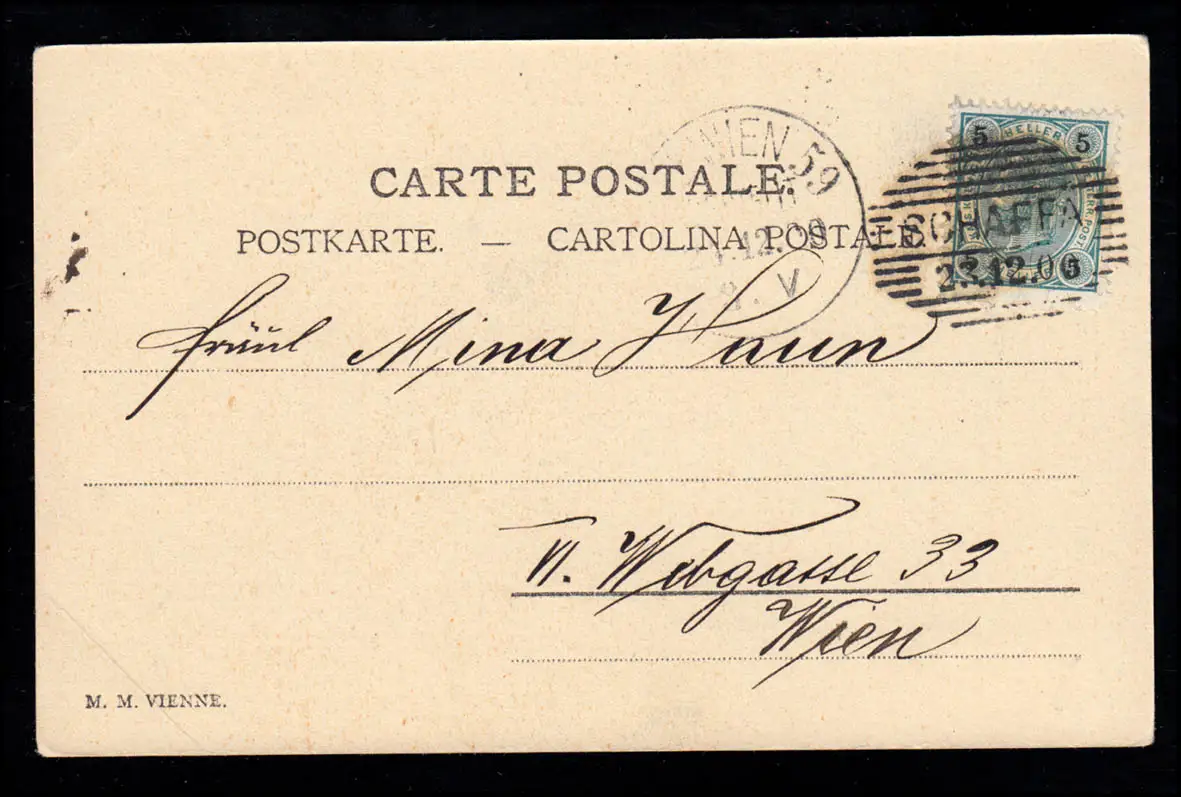 CARTE POSTALE.
POSTKARTE. — CARTOLINA POSTALE.
WIEN 59
12.00
V
5 HELLER 5
5
SCHAFFA
12.00
Fräul Mina Haun
VI. Webgasse 33
Wien
M. M. VIENNE.